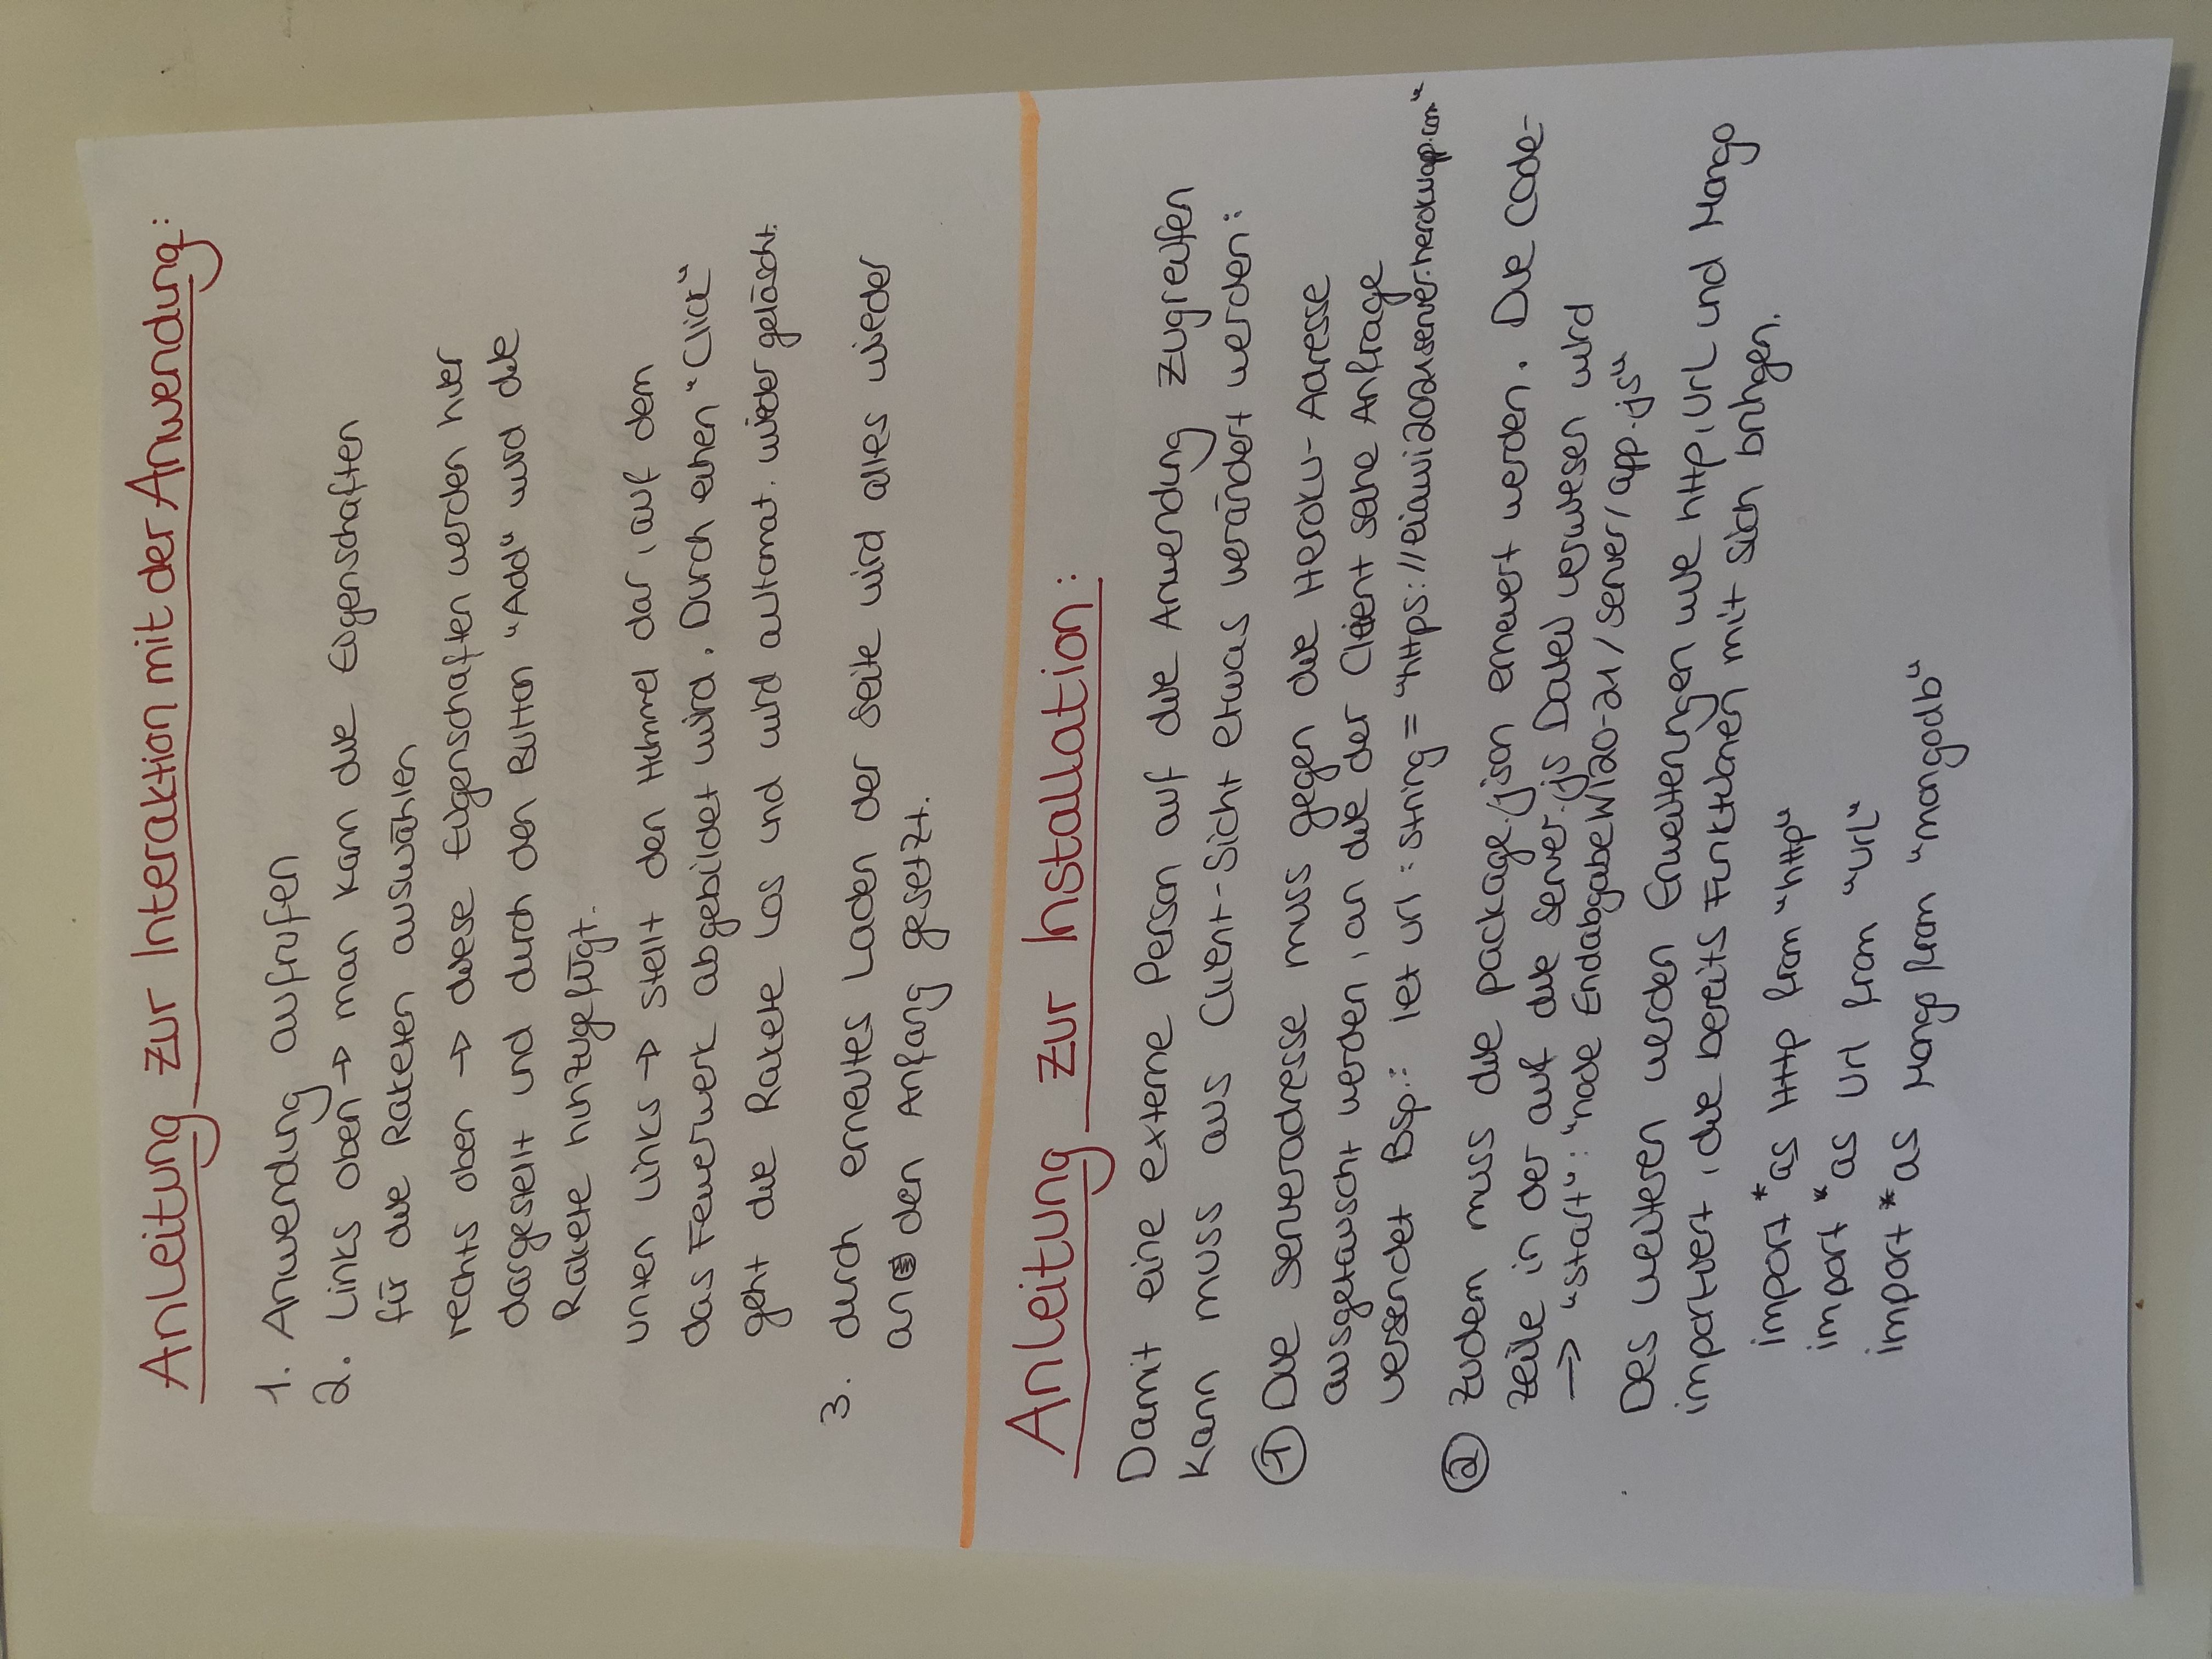 Anleitung zur Interaktion mit der Anwendung:
1. Anwendung aufrufen
2. Links oben → man kann die Eigenschaften
für die Raketen auswählen
rechts oben → diese Eigenschaften werden hier
dargestellt und durch den Button "Add" wird die
Rakete hinzugefügt.
unten links → stellt den Himmel dar, auf dem
das Feuerwerk abgebildet wird. Durch einen "Click"
geht die Rakete los und wird automat. wieder gelöscht.
3. durch erneutes Laden der Seite wird alles wieder
an den Anfang gesetzt.
Anleitung zur Installation:
Damit eine externe Person auf die Anwendung zugreifen
kann muss aus Client-Sicht etwas verändert werden:
① Die Serveradresse muss gegen die Heroku-Adresse
ausgetauscht werden, an die der Client seine Anfrage
versendet Bsp.: let url : string = "https://eiawi2021server.herokuapp.com"
② Zudem muss die package.json erneuert werden. Die Code-
zeile in der auf die Server.js Datei verwiesen wird
→ "start": "node EndabgabeWi20-21/server/app.js"
Des weiteren werden Erweiterungen wie http, Url und Mongo
importiert, die bereits Funktionen mit sich bringen.
import * as Http from "http"
import * as Url from "url"
import * as Mongo from "mongodb"